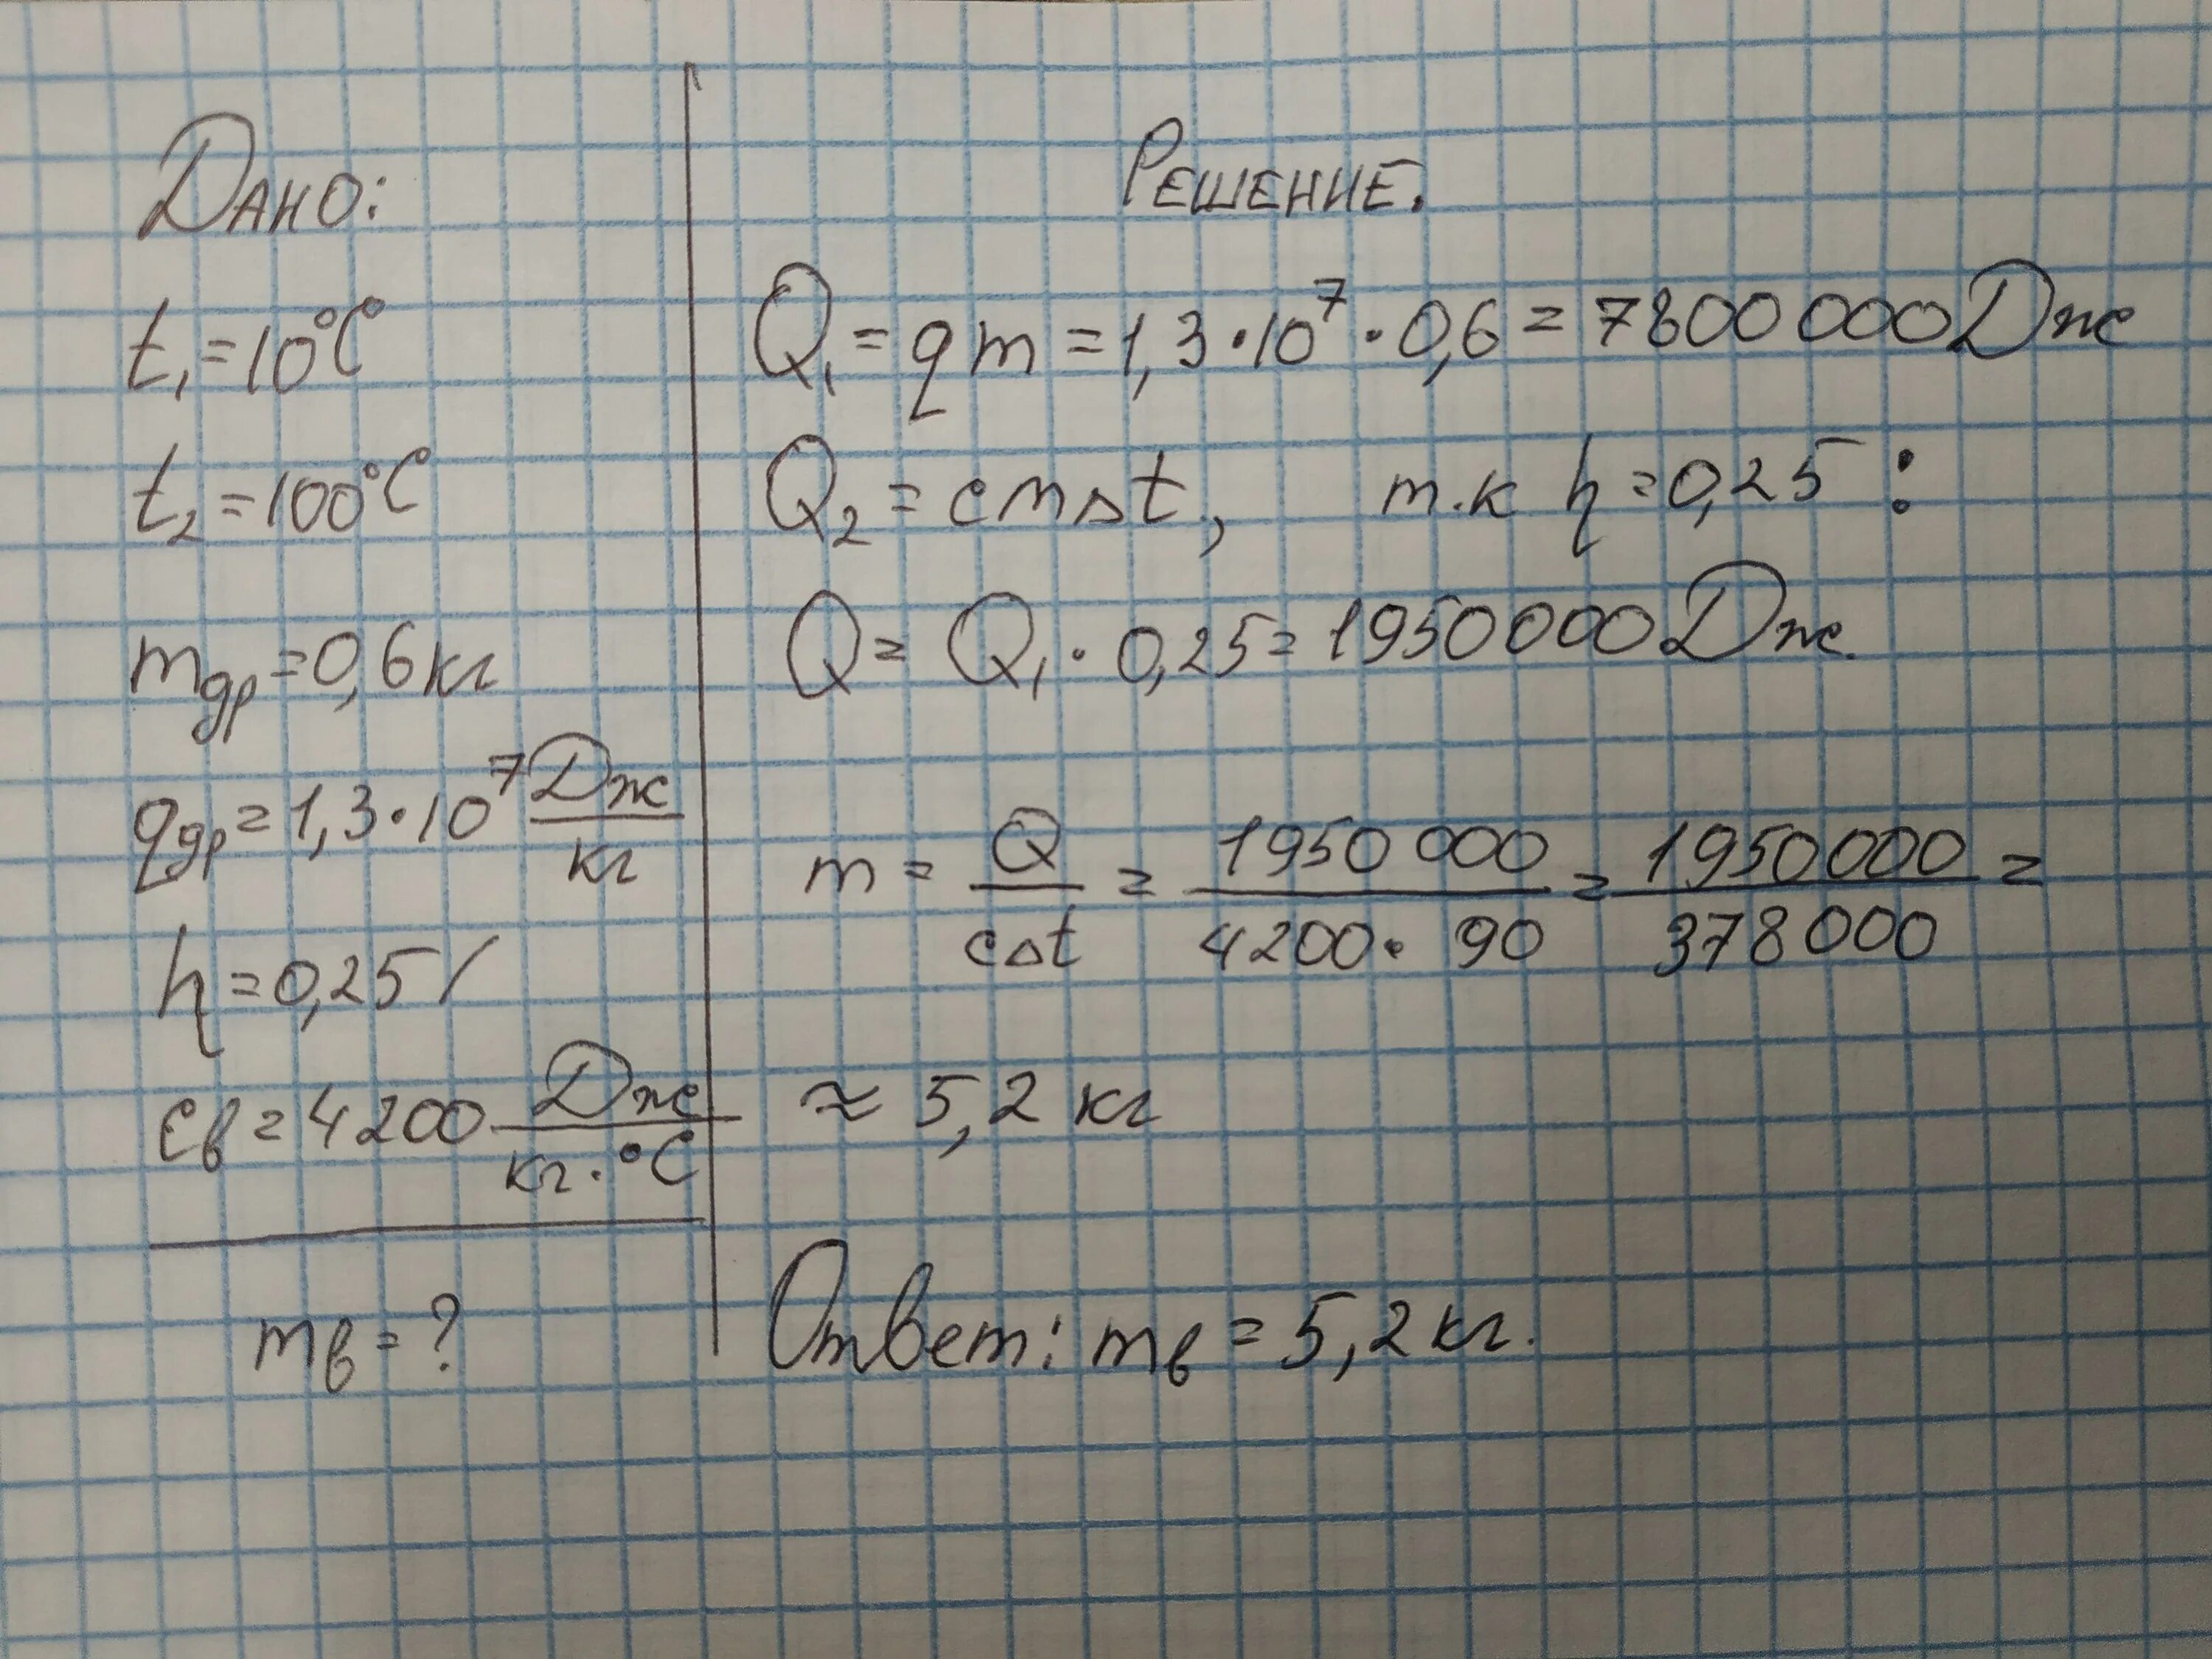 Дано:
t₁=10°C
t₂=100°C
mдр=0,6кг
qдр=1,3·10⁷ Дж/кг
η=0,25/
cв=4200 Дж/кг·°C
mв=?
Решение.
Q₁=qm=1,3·10⁷·0,6=7800000Дж
Q₂=cm∆t, т.к η=0,25:
Q=Q₁·0,25=1950000Дж.
m=Q/c∆t=1950000/4200·90=1950000/378000=
≈5,2кг
Ответ: mв=5,2кг.